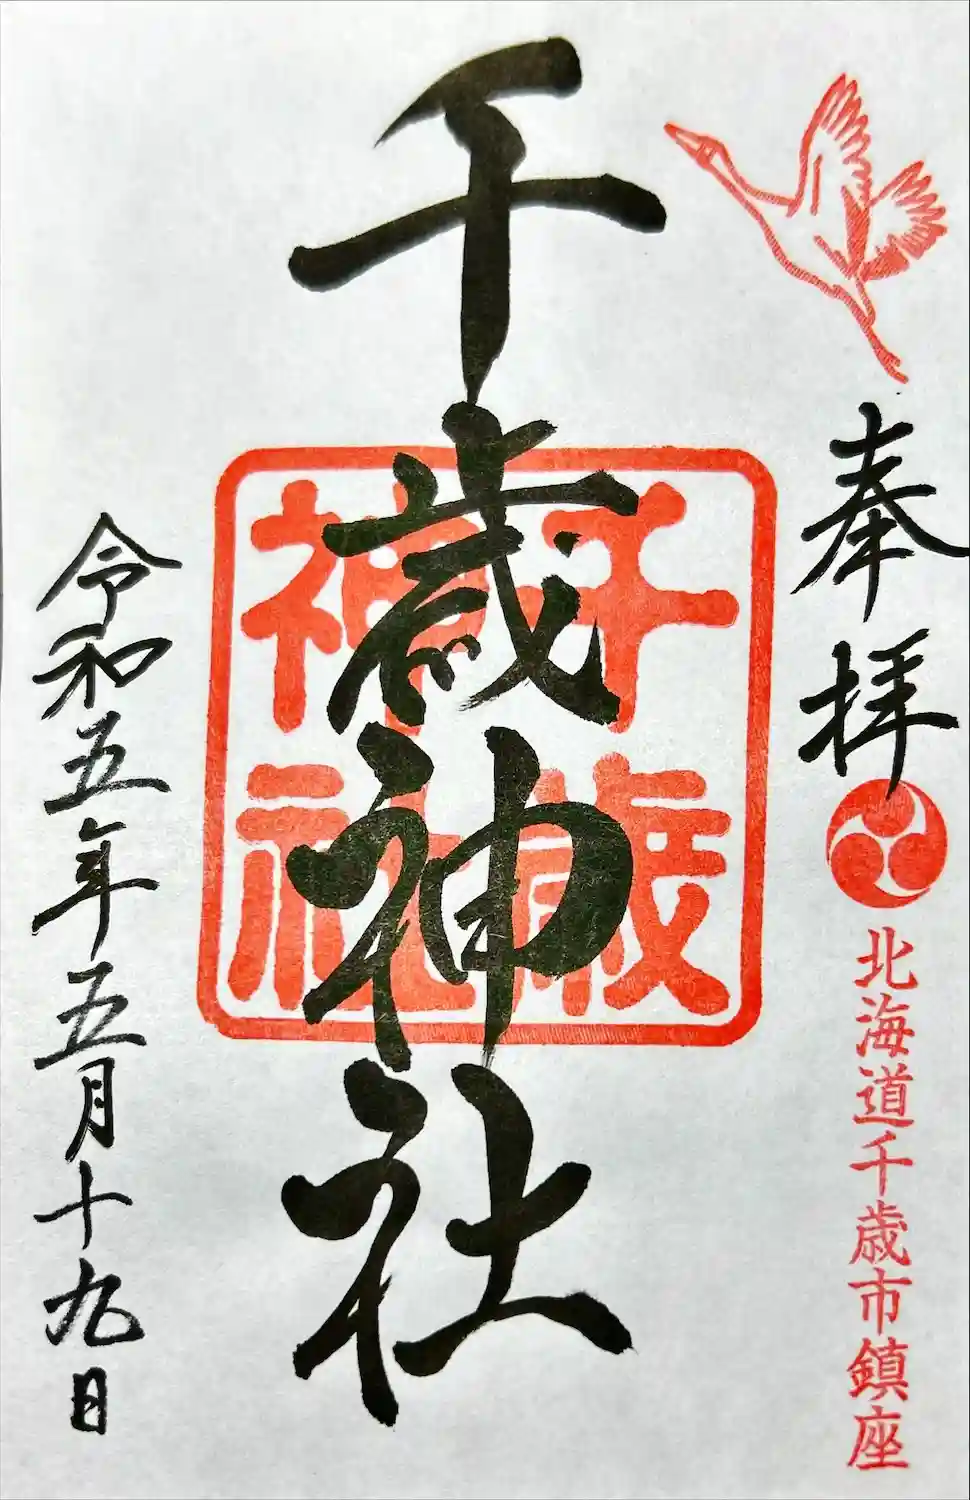 奉拝
北海道千歳市鎮座
千歳神社
千歳
神社
令和五年五月十九日